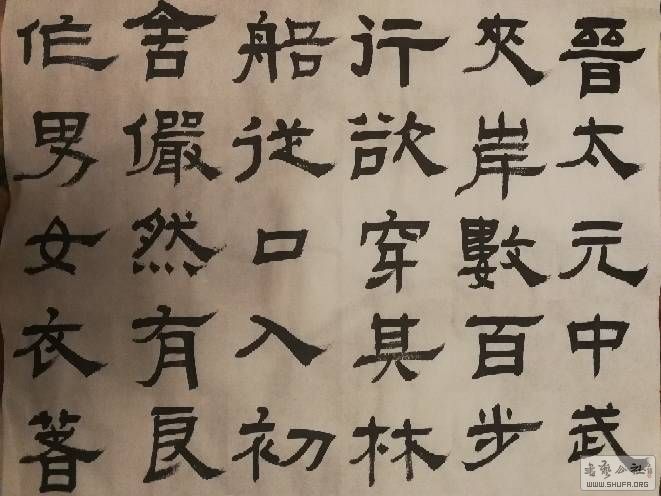 晉太元中武
夾岸數百步
行欲穿其林
船從口入初
舍儼然有良
作男女衣著
書藝公社
WWW.SHUFA.ORG